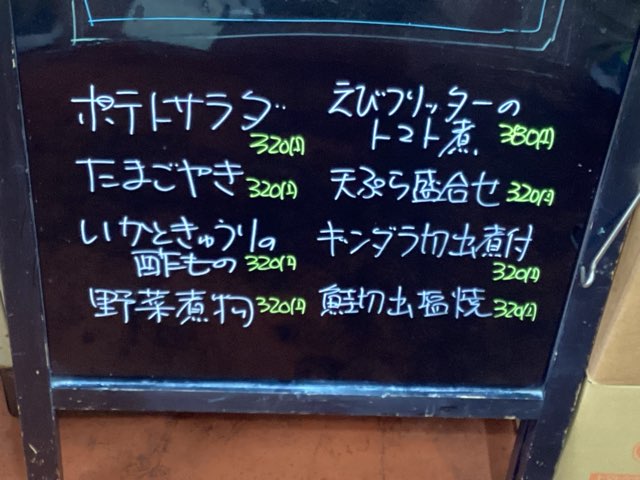 ポテトサラダ
320円
たまごやき 320円
いかときゅうりの
酢もの 320円
野菜煮物 320円
えびフリッターの
トマト煮 380円
天ぷら盛合せ 320円
ギンダラ切出煮付
320円
鮭切出塩焼 320円